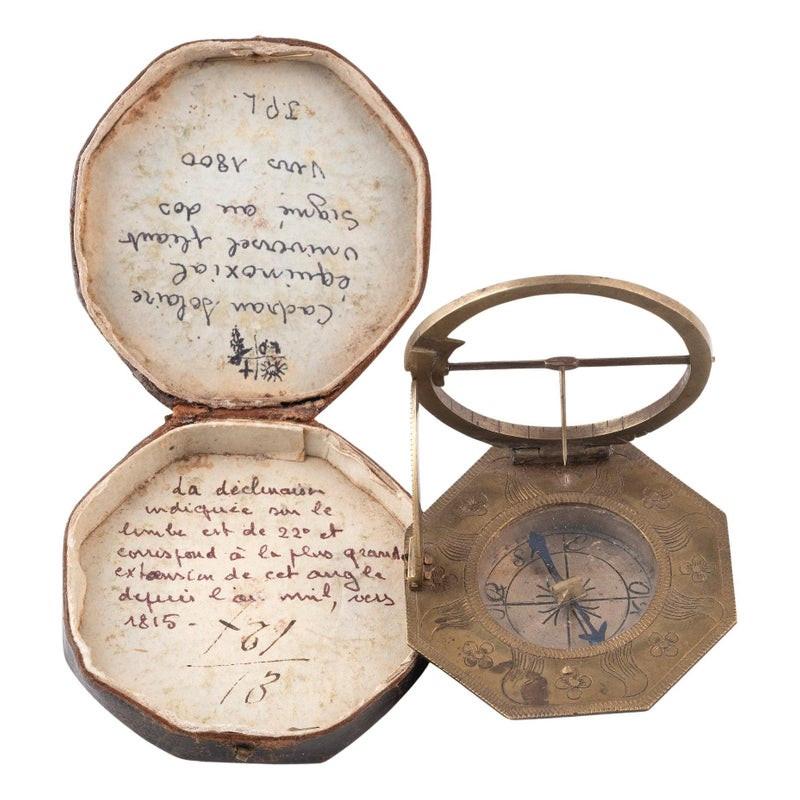 Cadran solaire
équinoxial
universel pliant
Signé au dos
Vers 1800
J.P.L.
La déclinaison
indiquée sur le
limbe est de 22° et
correspond à la plus grande
extension de cet angle
depuis l'an mil, vers
1815 -
13